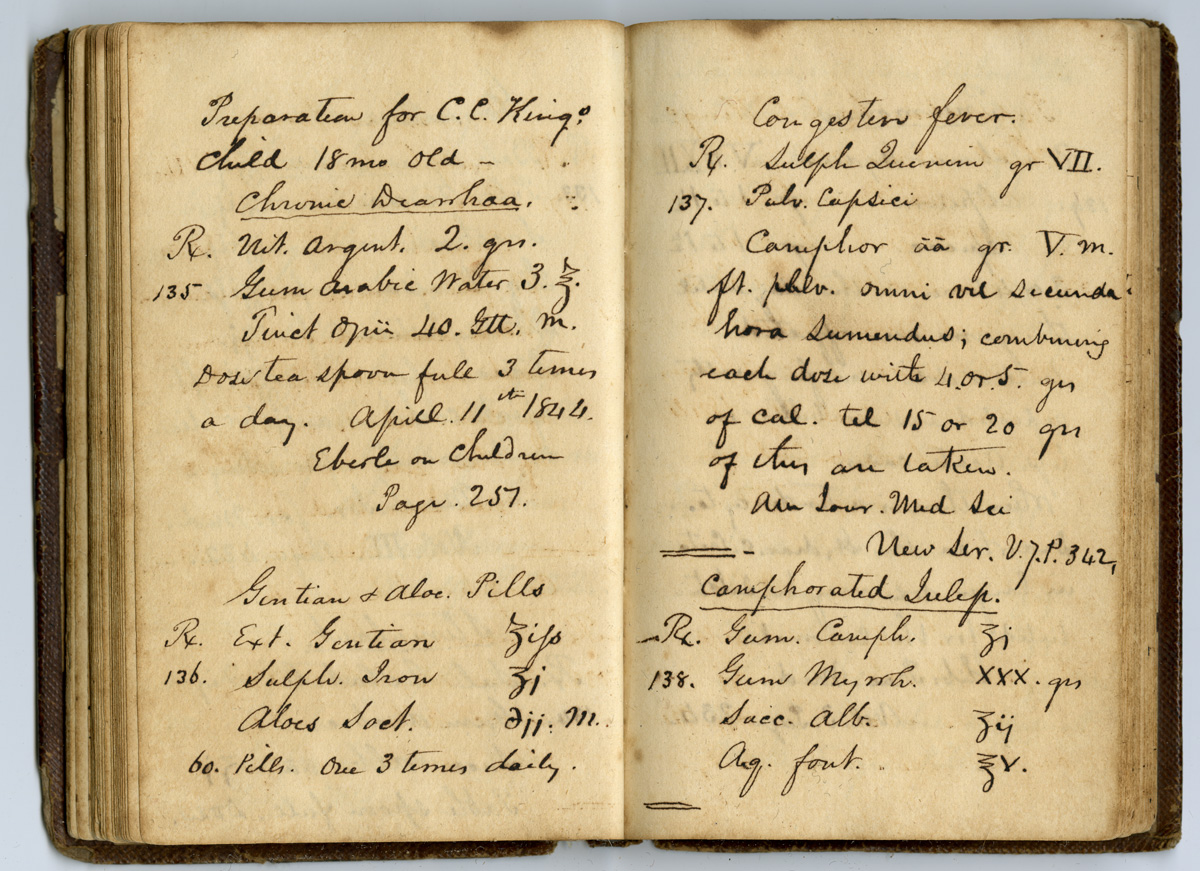 Preparation for C.C. King's
Child 18 mo old –
Chronic Diarrhœa.
℞. Nit. Argent. 2. grs.
135 Gum Arabic Water 3. ℥.
Tinct Opii 40. Gtt. m.
Dose tea spoon full 3 times
a day. Apill. 11th 1844.
Eberle on Children
Page. 257.
Gentian & Aloe. Pills
℞. Ext. Gentian ʒiſs
136. Sulph. Iron ʒj
Aloes Soct. ℈jj. M.
60. Pills. One 3 times daily.
Congesten fever.
℞. Sulph Quinini gr VII.
137. Pulv. Capsici
Camphor āā gr. V. m.
ft. pulv. omni vel secunda
hora sumendus; combining
each dose with 4. or 5. grs
of Cal. tel 15 or 20 grs
of this are taken.
Am Jour. Med Sci
New Ser. V. 7. P. 342,
Camphorated Julep.
℞. Gum. Camph. ʒj
138. Gum Myrrh. XXX. grs
Sacc. Alb. ʒij
Aq. font. ℥v.